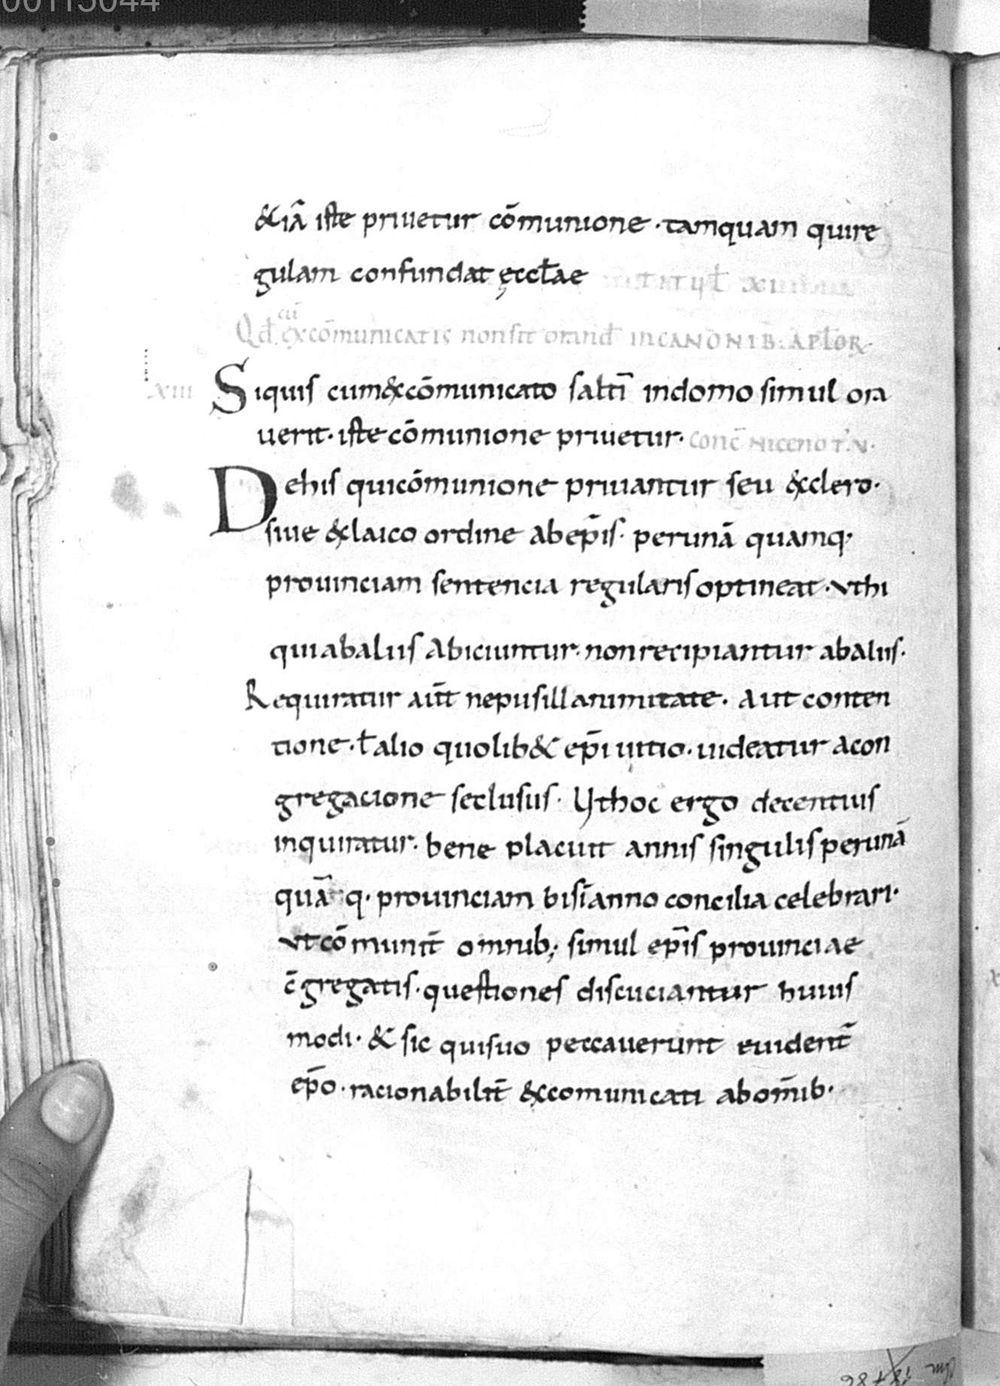 00115044
&iā iste priuetur cōmunione · tamquam quire
gulam confundat ęccłae
Qđ cū excōmunicatis non sit orand̄ in CANONIB: APŁOR
xiii
Siquis cum&cōmunicato saltī indomo simul ora
uerit· iste cōmunione priuetur· conc̄ niceno
Dehis quicōmunione priuantur seu &clero·
siue &laico ordine abep̄is· perunā quamq·
prouinciam sentencia regularis optineat · vthi
quiabaliis Abiciuntur· nonrecipiantur abaliis·
Requiratur aūt nepusillanimitate· Aut conten
tione · ł alio quolib& ep̄i uitio· uideatur acon
gregacione seclusus· Vthoc ergo decentius
inquiratur· bene placuit annis singulis perunā
quā q· prouinciam bis ī anno concilia celebrari·
vt cōmunit̄ omnib; simul ep̄is prouinciae
c̄gregatis· questiones discuciantur huius
modi· & sic quisuo peccauerunt euident̄
ep̄o· racionabilit̄ &comunicati abom̄ib·